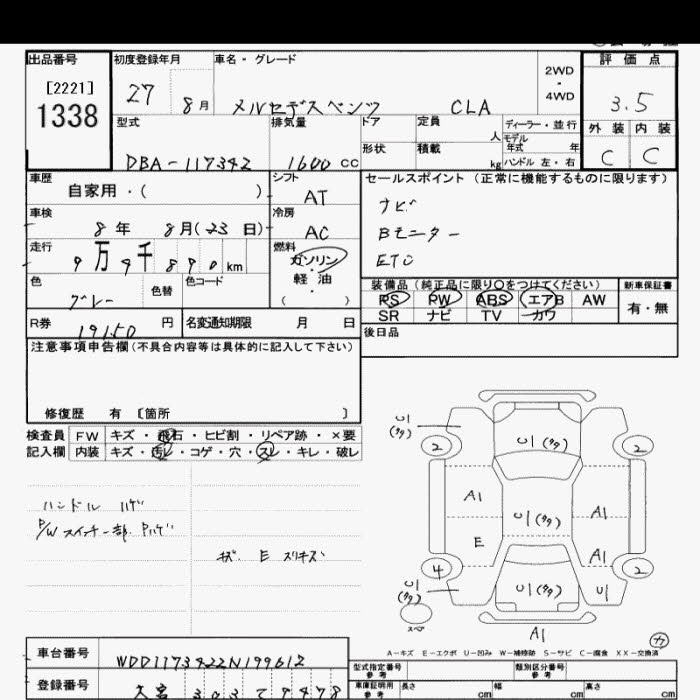 出品番号 初度登録年月 車名・グレード 2WD・4WD 評価点
[2221]
1338
27 8月 メルセデスベンツ CLA 3.5
外装 内装
C C
型式 排気量 ドア 定員 人 ディーラー・並行
モデル年式 年
形状 積載 kg ハンドル 左・右
DBA-117342 1600 CC
車歴 自家用・( ) シフト AT
セールスポイント (正常に機能するものに限ります)
ナビ
Bモニター
ETC
車検 8年 8月(23日) 冷房 AC
走行 9万9千890km 燃料 ガソリン・軽油・( )
色 グレー 色替 色コード
装備品(純正品に限り〇をつけてください) 新車保証書
PS PW ABS エアB AW 有・無
SR ナビ TV カワ
R券 19150円 名変通知期限 月 日
後日品
注意事項申告欄(不具合内容等は具体的に記入して下さい)
修復歴 有 〔箇所 〕
検査員 FW キズ・飛石・ヒビ割・リペア跡・×要
記入欄 内装 キズ・汚レ・コゲ・穴・スレ・キレ・破レ
ハンドル ハゲ
P/Wスイッチ部 Pハゲ
キズ E スリキズ
U1
2 U1 2
A1 U1 A1
E A1
4 U1 2
U1 U1
スペア
A1
A-キズ E-エクボ U-凹み W-補修跡 S-サビ C-腐食 XX-交換済
車台番号 WDD1173422N199612
型式指定番号 参考 類別区分番号 参考
登録番号
車庫証明用 参考 長さ cm 幅 cm 高さ cm